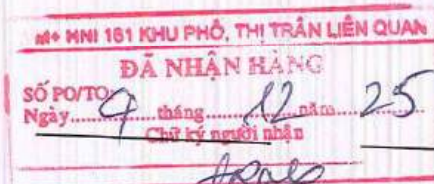 M+ HNI 161 KHU PHỐ, THỊ TRẤN LIÊN QUAN
ĐÃ NHẬN HÀNG
SỐ PO/TO:
Ngày......9......tháng......12......năm......25
Chữ ký người nhận